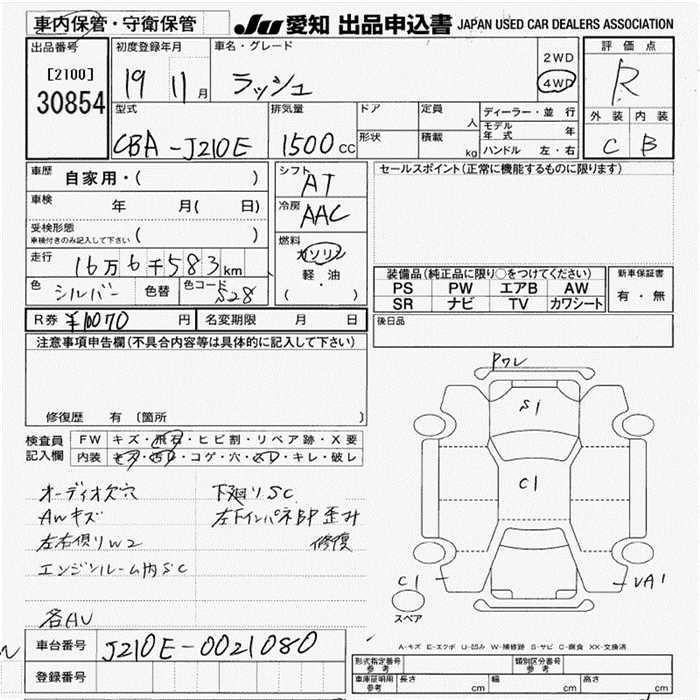 車内保管・守衛保管
JU 愛知 出品申込書 JAPAN USED CAR DEALERS ASSOCIATION
出品番号
[2100]
30854
初度登録年月
19 11月
車名・グレード
ラッシュ
2WD
4WD
評価点
R
外装 内装
C B
型式
CBA-J210E
排気量
1500cc
ドア
形状
定員
人
積載
kg
ディーラー・並行
モデル年式 年
ハンドル 左・右
車歴
自家用・( )
車検 年 月( 日)
受検形態
車検付きのみ記入して下さい ( )
走行 16万6千583km
色 シルバー 色替 色コード S28
シフト
AT
冷房
AAC
燃料
ガソリン
軽・油
( )
セールスポイント(正常に機能するものに限ります)
装備品(純正品に限り○をつけてください)
PS PW エアB AW
SR ナビ TV カワシート
新車保証書
有・無
R券 ¥10070 円 名変期限 月 日
後日品
注意事項申告欄(不具合内容等は具体的に記入して下さい)
修復歴 有 〔箇所 〕
検査員記入欄
FW キズ・飛石・ヒビ割・リペア跡・X要
内装 キズ・汚レ・コゲ・穴・スレ・キレ・破レ
オーディオ欠穴
AWキズ
左右側リW2
エンジンルーム内SC
各AU
下廻りSC
左下インパネBP歪み
修復
Pワレ
S1
C1
C1
VA1
スペア
A-キズ E-エクボ U-凹み W-補修跡 S-サビ C-腐食 XX-交換済
車台番号 J210E-0021080
登録番号
形式指定番号 参考
類別区分番号 参考
車庫証明用 参考
長さ cm 幅 cm 高さ cm